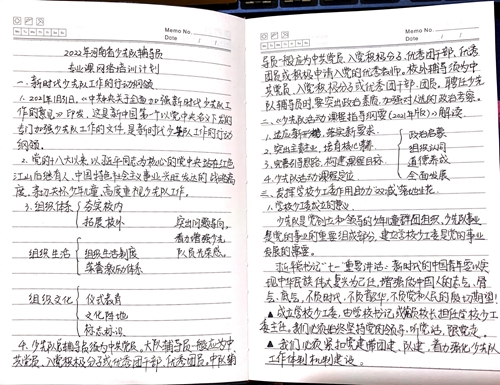 Memo No.
Date / /
2022年河南省少先队辅导员
专业课网络培训计划
一、新时代少先队工作的行动纲领
1. 2021年1月31日,《中共中央关于全面加强新时代少先队工
作的意见》印发,这是新中国第一个以党中央名义下发的
专门加强少先队工作的文件,是新时代少先队工作的行动
纲领。
2. 党的十八大以来,以近平同志为核心的党中央站在红色
江山后继有人、中国特色社会主义事业兴旺发达的战略高
度,亲切关怀少年儿童,高度重视少先队工作。
3. 组织体系 夯实校内
拓展校外
突出问题导向,
组织生活 组织生活制度
着力增强少先
荣誉激励体系
队员光荣感。
组织文化 仪式教育
文化阵地
标志标识
4. 少先队总辅导员须为中共党员。大队辅导员一般应为中
共党员、入党积极分子或优秀团干部、优秀团员。中队辅
Memo No.
Date / /
导员一般应为中共党员、入党积极分子、优秀团干部、优秀
团员或积极申请入党的优秀教师。校外辅导员须为中
共党员、入党积极分子或优秀团干部、团员。聘任少先
队辅导员时,要突出政治素质,加强对人选的政治考察。
二、《少先队活动课程指导纲要(2021年版)》解读
1. 适应新时代,落实新要求. 政治启蒙
2. 突出主责主业,培育核心素养. 组织认同
3. 完善引导思路,构建课程目标. 道德养成
4. 少先队活动课程定位 全面发展
三、发挥学校少工委作用助力"双减"落地生花.
1. 学校少工委成立的意义.
少先队是党创立和领导的少年儿童群团组织,少先队事业
是党的事业的重要组成部分,建立学校少工委是党的事业
发展的需要。
习近平书记"七一"重要讲话:新时代的中国青年要以实
现中华民族伟大复兴为己任,增强做中国人的志气、骨
气、底气,不负时代,不负韶华,不负党和人民的殷切期望!
▲成立学校少工委,由学校书记或副校长担任学校少工
委主任。我们必须始终坚持党的领导,听党话、跟党走。
▲我们必须紧扣党建带团建、队建,着力强化少先队
工作体制机制建设。